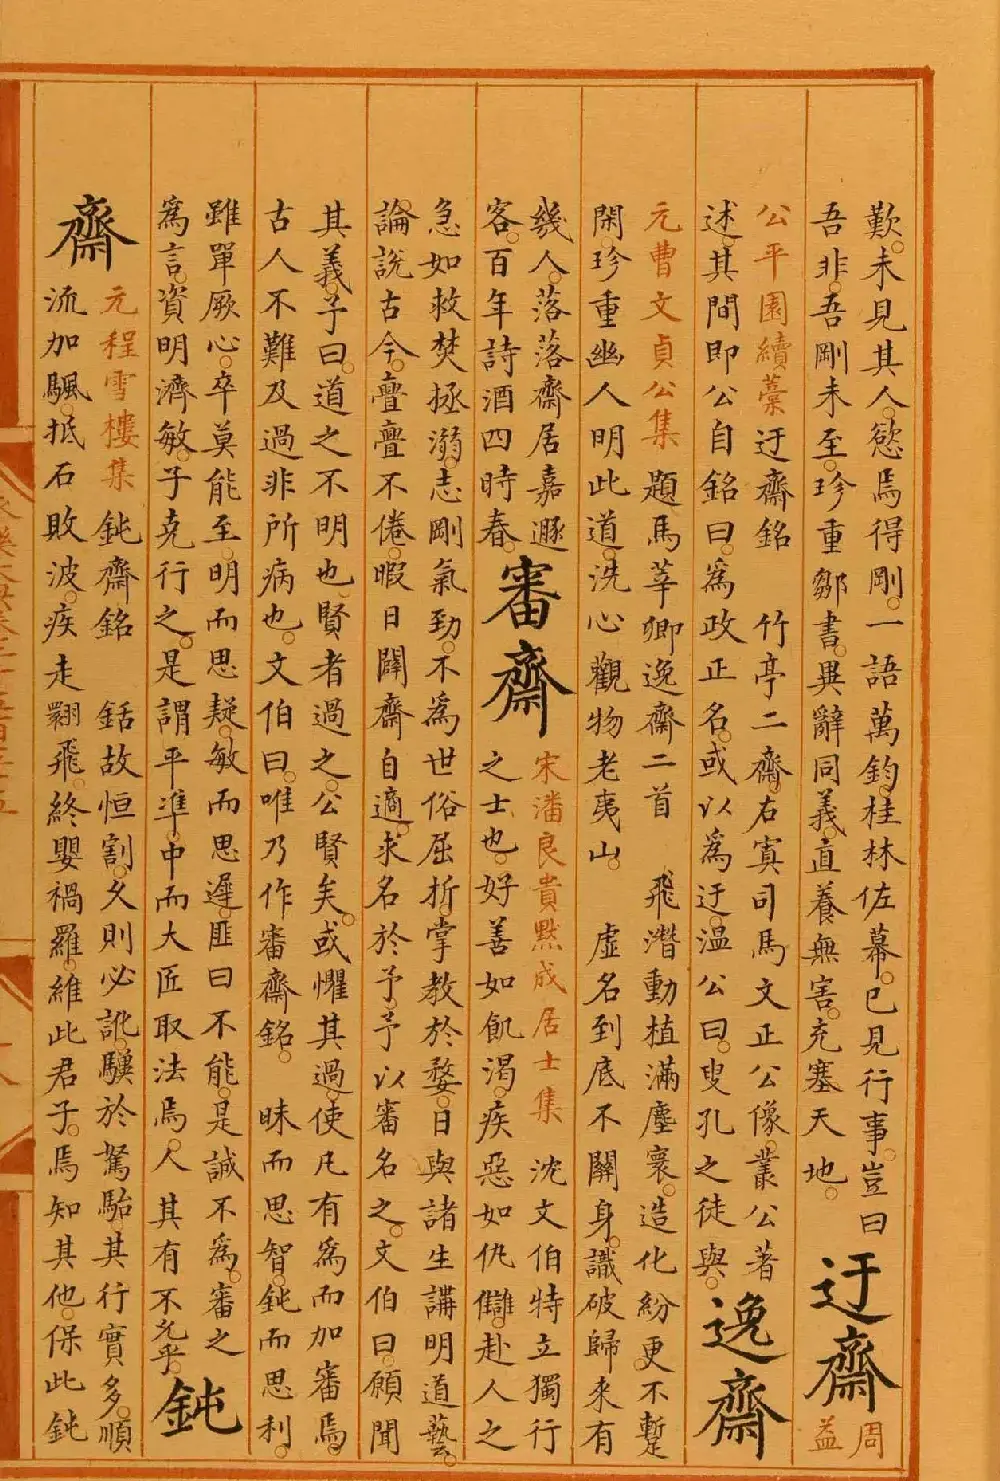 歎。未見其人。慾焉得剛。一語萬鈞。桂林佐幕。已見行事。豈曰
吾非。吾剛未至。珍重鄒書。異辭同義。直養無害。充塞天地。
迂齋
周
益
公平園續藁 迂齋銘 竹亭二齋。右寘司馬文正公像。叢公著
述。其間即公自銘曰。為政正名。或以為迂。溫公曰。叟孔之徒與。
逸齋
元曹文貞公集 題馬莘卿逸齋二首 飛潛動植滿塵寰。造化紛更不暫
閑。珍重幽人明此道。洗心觀物老夷山。 虛名到底不關身。識破歸來有
幾人。落落齋居嘉遯
客。百年詩酒四時春。
審齋
宋潘良貴黙成居士集 沈文伯特立獨行
之士也。好善如飢渴。疾惡如仇讎。赴人之
急如救焚拯溺。志剛氣勁。不為世俗屈折。掌教於婺。日與諸生講明道藝。
論說古今。亹亹不倦。暇日闢齋自適。求名於予。予以審名之。文伯曰。願聞
其義。子曰。道之不明也。賢者過之。公賢矣。或懼其過。使凡有為而加審焉。
古人不難及。過非所病也。文伯曰。唯乃作審齋銘。 昧而思智。鈍而思利。
雖單厥心。卒莫能至。明而思疑。敏而思遲。匪曰不能。是誠不為。審之
為言。資明濟敏。子克行之。是謂平準。中而大匠取法焉。人其有不允乎。
鈍
齋
元程雪樓集 鈍齋銘 銛故恒割。久則必訛。驥於駑駘。其行實多。順
流加颿。抵石敗波。疾走翾飛。終嬰禍羅。維此君子。焉知其他。保此鈍